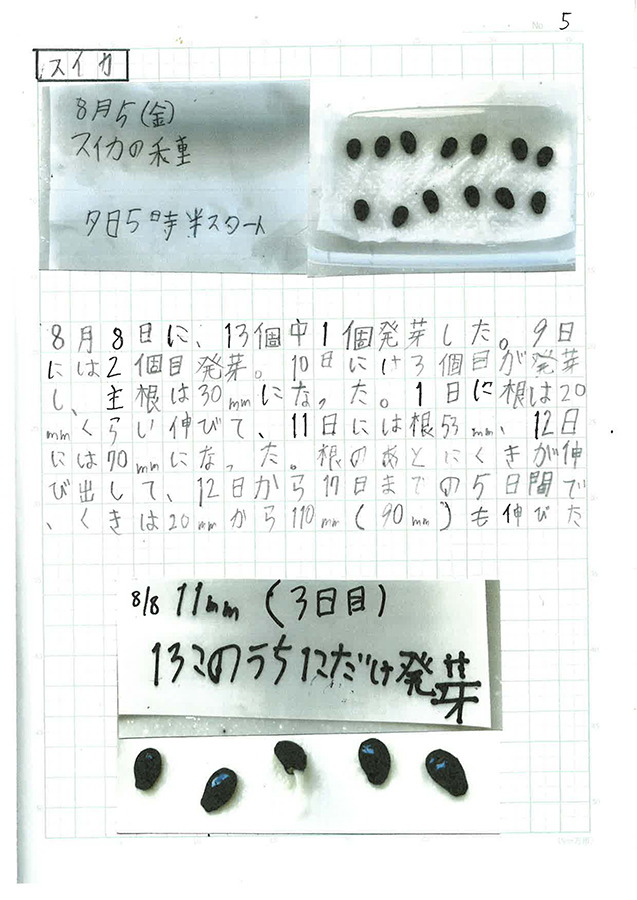 No. 5
スイカ
8月5(金)
スイカの種
夕日5時半スタート
8月8日に、13個中1個発芽した。9日
には2個目発芽。10日には3個目が発芽
し、主根は30mmになった。1日に根は20
mmくらい伸びて、11日には根53mm、12日
には70mmになった。根のあとにくきが伸
び出して、12日から17日までの5日間で
、くきは20mmから110mm(90mm)も伸びた
8/8 11mm (3日目)
13このうち1こだけ発芽